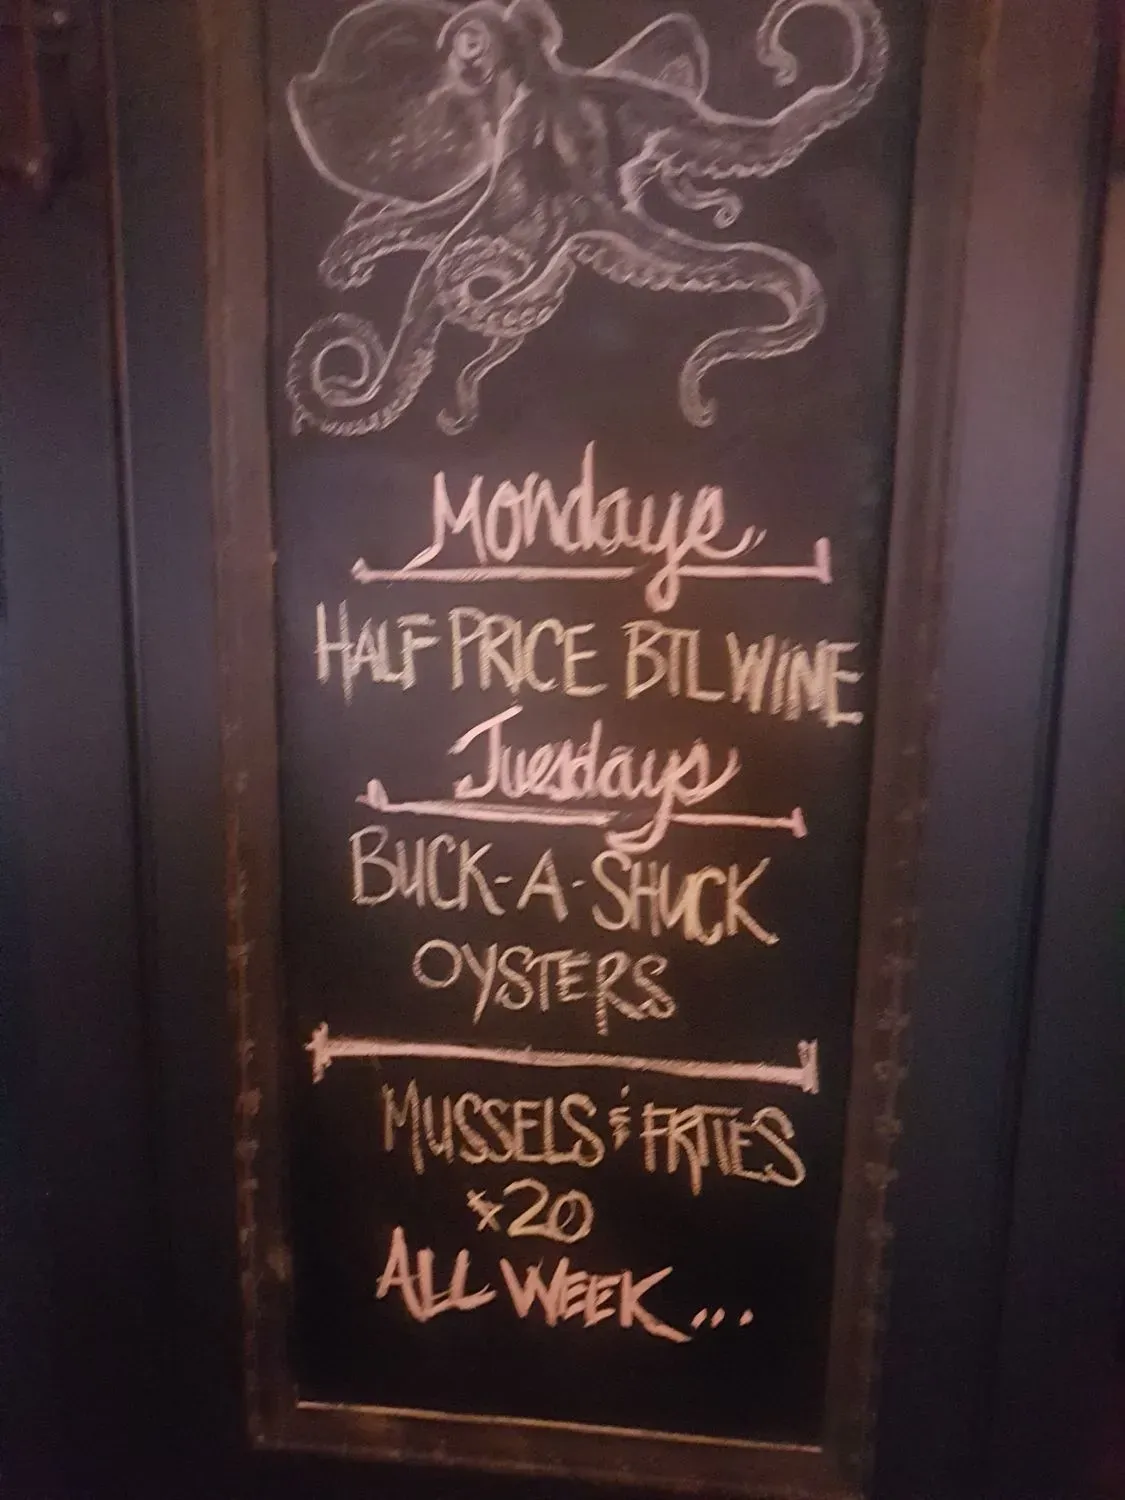 Mondays
HALF PRICE BTL WINE
Tuesdays
BUCK-A-SHUCK
OYSTERS
MUSSELS & FRITES
$20
ALL WEEK...